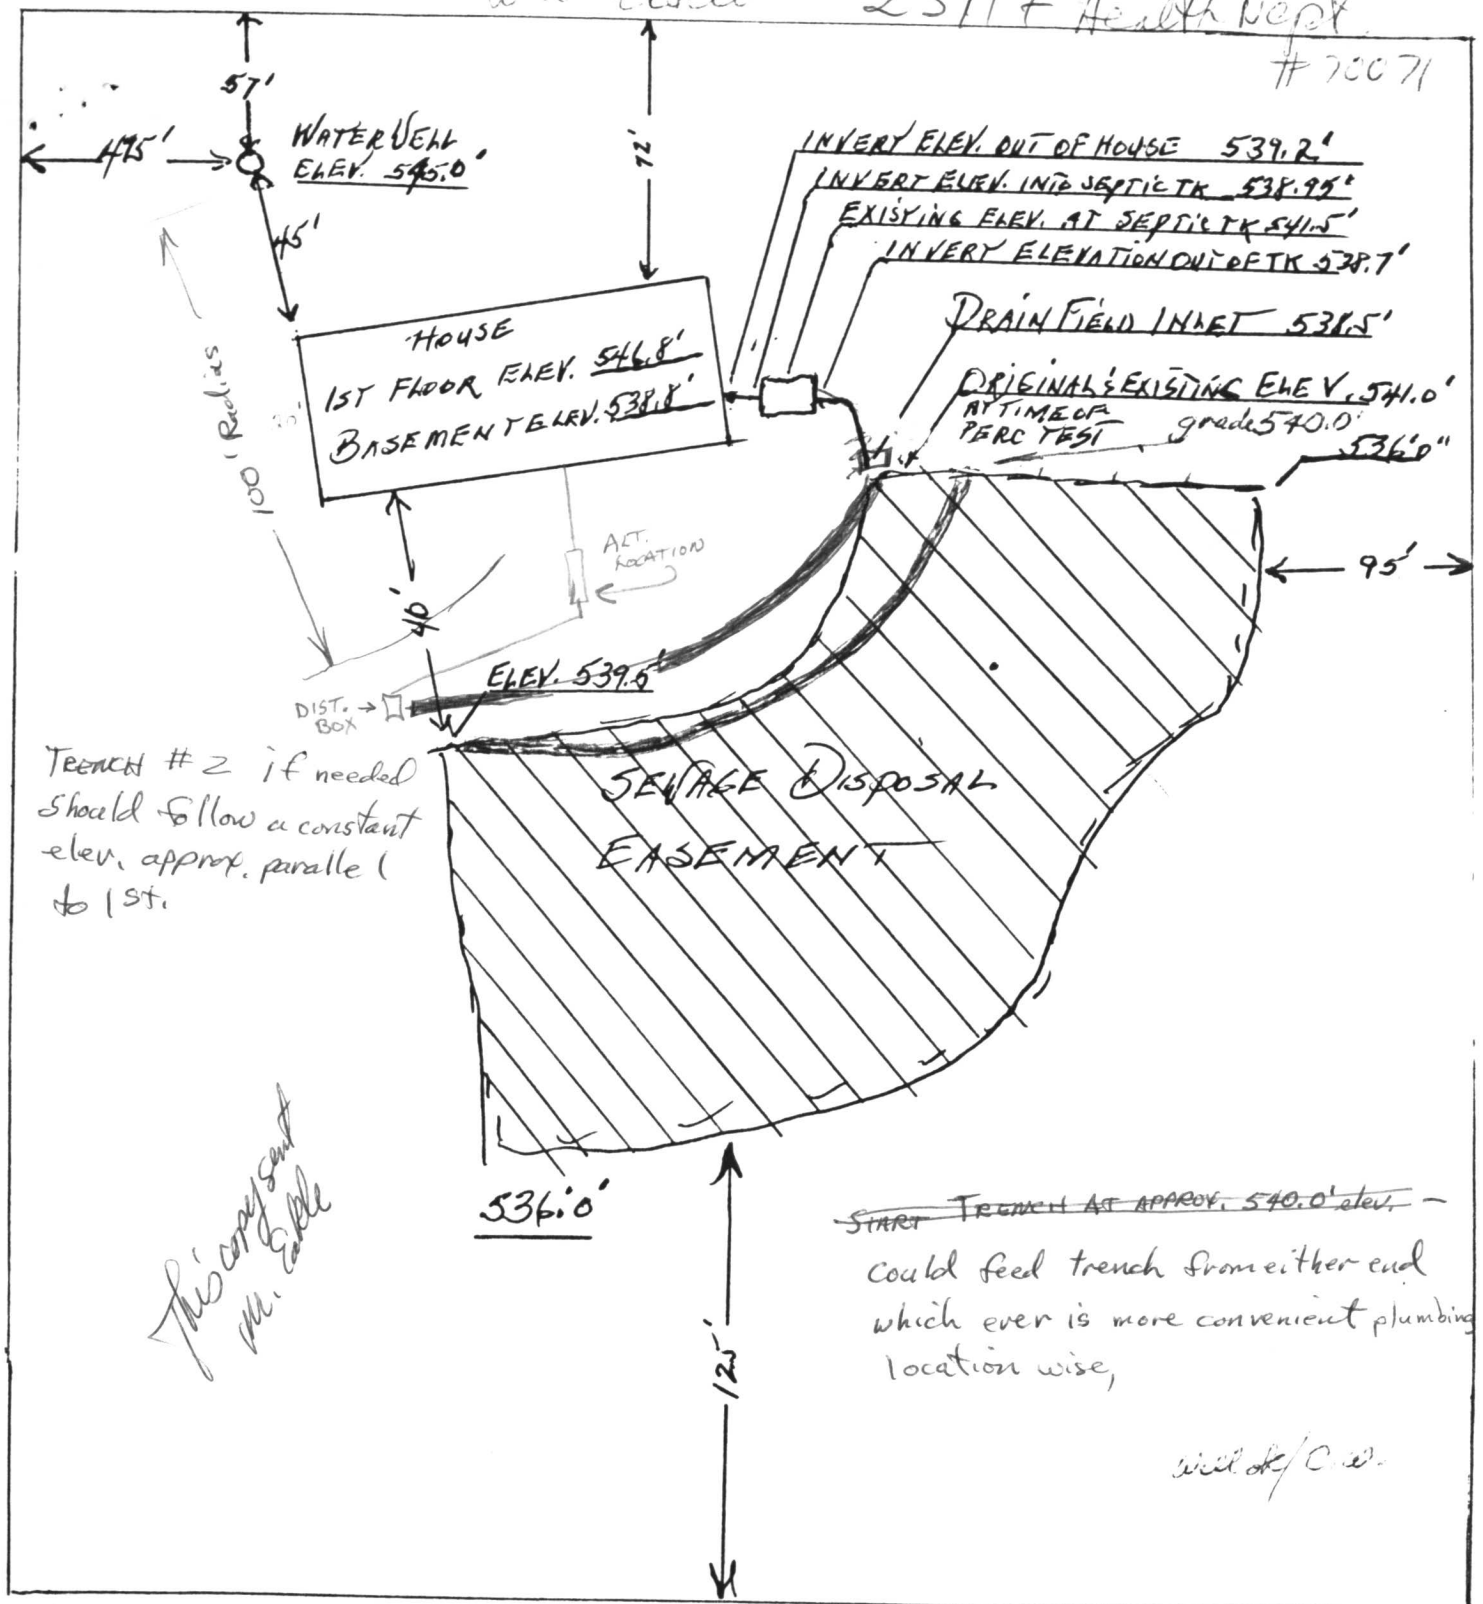 Health Dept.
# 70071
57'
WATER WELL
ELEV. 545.0'
45'
72'
INVERT ELEV. OUT OF HOUSE 539.2'
INVERT ELEV. INTO SEPTIC TK 538.95'
EXISTING ELEV. AT SEPTIC TK 541.5'
INVERT ELEVATION OUT OF TK 538.7'
DRAIN FIELD INLET 538.5'
ORIGINAL & EXISTING ELEV. 541.0'
AT TIME OF
PERC TEST
grade 540.0'
536'0"
HOUSE
1ST FLOOR ELEV. 546.8'
BASEMENT ELEV. 538.8'
100' Radius
ALT.
LOCATION
40'
95'
ELEV. 539.5'
DIST.
BOX
TRENCH # 2 if needed
should follow a constant
elev. approx. parallel
to 1st.
SEWAGE DISPOSAL
EASEMENT
This copy sent
536.0'
START TRENCH AT APPROX. 540.0' elev. -
could feed trench from either end
which ever is more convenient plumbing
location wise,
125'
Well ok/ C.W.